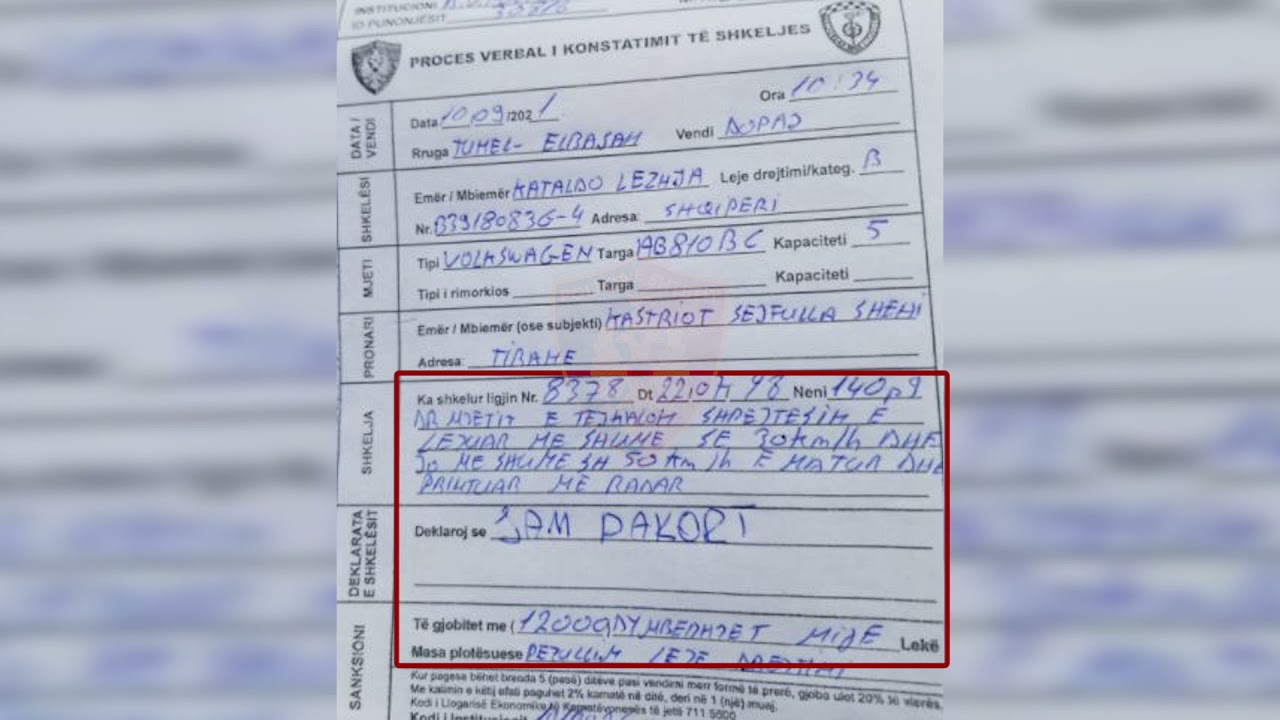 INSTITUCIONI
ID PUNONJËSIT
PROCES VERBAL I KONSTATIMIT TË SHKELJES
DATA / VENDI
Data 10.09/2021 Ora 10:34
Rruga TUNEL- ELBASAN Vendi DOPAJ
SHKELËSI
Emër / Mbiemër KATALDO LEZHJA Leje drejtimi/kateg. B
Nr. Adresa: SHQIPERI
MJETI
Tipi VOLKSWAGEN Targa AB810BC Kapaciteti 5
Tipi i rimorkios Targa Kapaciteti
PRONARI
Emër / Mbiemër (ose subjekti) KASTRIOT SEJFULLA SHEHI
Adresa: TIRANE
SHKELJA
Ka shkelur ligjin Nr. 8378 Dt 22.07.98 Neni 140p9
DR MJETIT E TEJKALON SHPEJTESIN E
LEJUAR ME SHUME SE 30km/h DHE
JO ME SHUME SH 50 km/h E MATUR DHE
PRINTUAR ME RADAR
DEKLARATA E SHKELËSIT
Deklaroj se JAM DAKORT
SANKSIONI
Të gjobitet me ( 12000 DYMBEDHJET MIJE Lekë
Masa plotësuese PEZULLIM LEJE DREJTIMI
Kur pagesa bëhet brenda 5 (pesë) ditëve pasi vendimi merr formë të prerë, gjoba ulet 20% të vlerës.
Me kalimin e këtij afati paguhet 2% kamatë në ditë, deri në 1 (një) muaj.
Kodi i Llogarisë Ekonomike të
Kodi i Institucionit